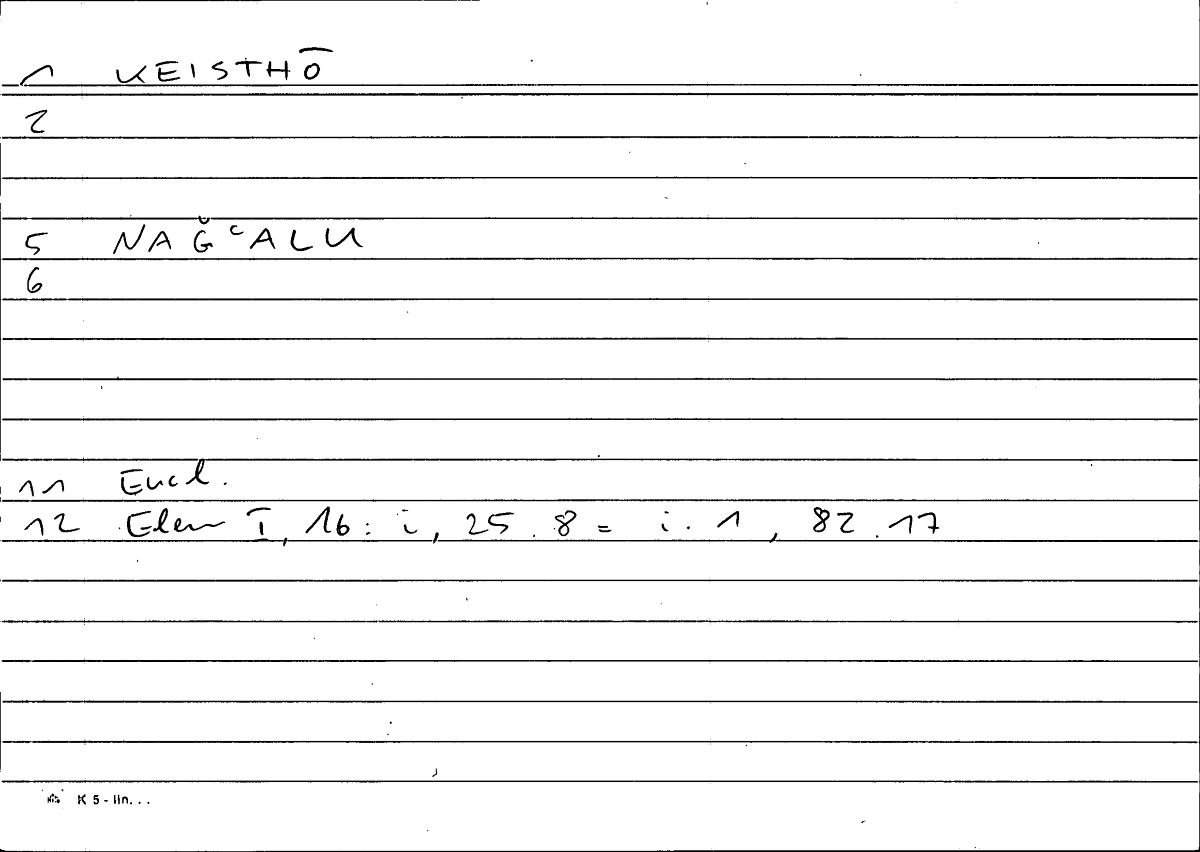 1 KEISTHŌ
2
5 NAǦʿALU
6
11 Eucl.
12 Elem I, 16: i, 25.8 = i.1, 82.17
K 5 - lin...